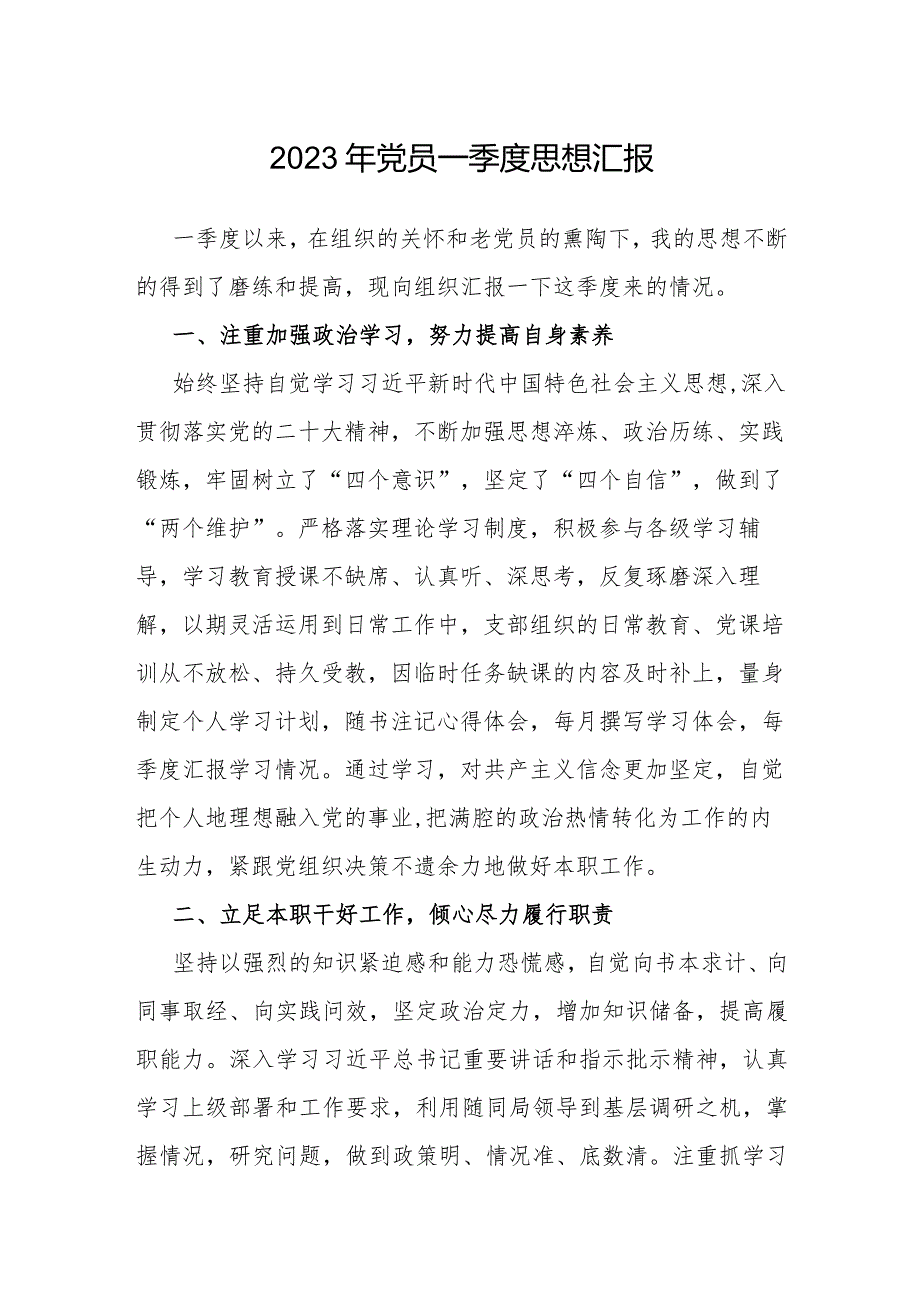 2023年党员一季度思想汇报
一季度以来，在组织的关怀和老党员的熏陶下，我的思想不断
的得到了磨练和提高，现向组织汇报一下这季度来的情况。
一、注重加强政治学习，努力提高自身素养
始终坚持自觉学习习近平新时代中国特色社会主义思想,深入
贯彻落实党的二十大精神，不断加强思想淬炼、政治历练、实践
锻炼，牢固树立了“四个意识”，坚定了“四个自信”，做到了
“两个维护”。严格落实理论学习制度，积极参与各级学习辅
导，学习教育授课不缺席、认真听、深思考，反复琢磨深入理
解，以期灵活运用到日常工作中，支部组织的日常教育、党课培
训从不放松、持久受教，因临时任务缺课的内容及时补上，量身
制定个人学习计划，随书注记心得体会，每月撰写学习体会，每
季度汇报学习情况。通过学习，对共产主义信念更加坚定，自觉
把个人地理想融入党的事业,把满腔的政治热情转化为工作的内
生动力，紧跟党组织决策不遗余力地做好本职工作。
二、立足本职干好工作，倾心尽力履行职责
坚持以强烈的知识紧迫感和能力恐慌感，自觉向书本求计、向
同事取经、向实践问效，坚定政治定力，增加知识储备，提高履
职能力。深入学习习近平总书记重要讲话和指示批示精神，认真
学习上级部署和工作要求，利用随同局领导到基层调研之机，掌
握情况，研究问题，做到政策明、情况准、底数清。注重抓学习